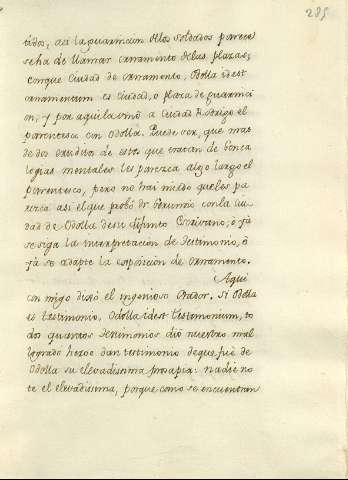 285
tidos; así la guarnicion de los Soldados parece
se ha de llamar ornamento de las plazas;
conque Ciudad de ornamento, Odolla idest
ornamentum es Ciudad, o plaza de guarnici
on, y por aquí la vino a Ciudad Rodrigo el
parentesco con Odolla. Puede ser, que mas
de dos eruditos de estos que tratan de
mentales les parezca algo largo el
parentesco, pero no hai miedo que les pa
rezca asi el que probó Fr Gerundio con la Ciu
dad de Odolla de su difunto Escrivano; o ya
se siga la interpretacion de testimonio, o
ya se adapte la exposicion de Ornamento.
Aqui
con migo dixo el ingenioso Orador. Si Odolla
es testimonio, Odolla idest testimonium, to
dos quantos testimonios dio nuestro mal
logrado heroe dan testimonio de que fue de
Odolla su elevadissima prosapia: nadie no
te el elevadissima, porque como se encuentran